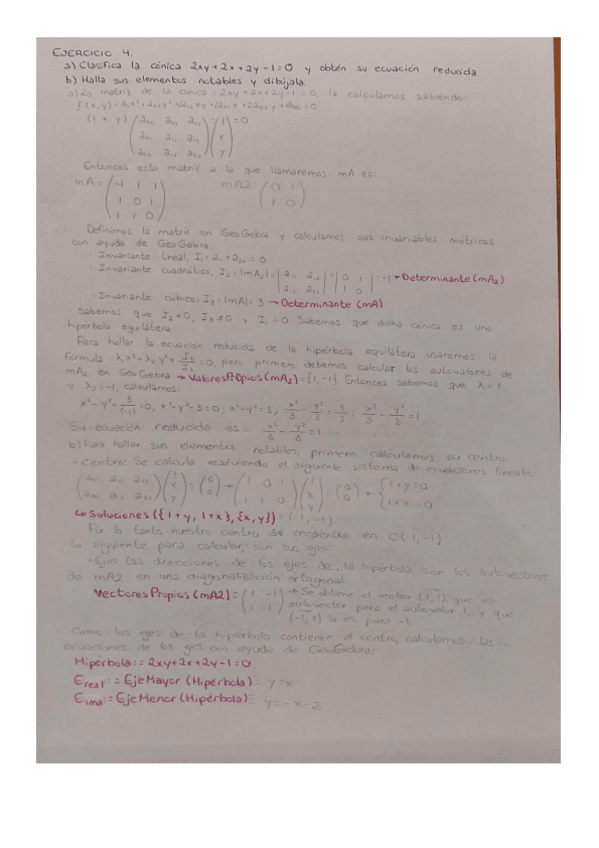 EJERCICIO 4.
a) Clasifica la cónica 2xy+2x+2y-1=0 y obtén su ecuación reducida.
b) Halla sus elementos notables y dibújala.
a) La matriz de la cónica = 2xy+2x+2y-1=0, la calculamos sabiendo:
(1 x y)
Entonces esta matriz a la que llamaremos mA es:
mA = (-1 1 1 / 1 0 1 / 1 1 0) mA2 = (0 1 / 1 0)
Definimos la matriz en GeoGebra y calculamos sus invariables métricos
con ayuda de GeoGebra:
· Invariante lineal, I₁ = a₁₁ + a₂₂ = 0
· Invariante cuadrático, I₂ = |mA₂| = |a₁₁ a₁₂ / a₁₂ a₂₂| = |0 1 / 1 0| = -1 → Determinante(mA2)
· Invariante cúbico, I₃ = |mA| = 3 → Determinante (mA)
Sabemos que I₂ < 0, I₃ ≠ 0 y I₁ = 0. Sabemos que dicha cónica es una
hipérbola equilátera.
Para hallar la ecuación reducida de la hipérbola equilátera usaremos la
fórmula λ₁x²+λ₂y²+I₃/I₂=0, pero primero debemos calcular los autovalores de
mA2 en GeoGebra → ValoresPropios(mA2) = {1, -1} Entonces sabemos que λ₁=1
y λ₂=-1, calculamos:
x²-y²+3/(-1)=0, x²-y²-3=0, x²-y²=3, x²/3 - y²/3 = 3/3; x²/3 - y²/3 = 1
Su ecuación reducida es x²/3 - y²/3 = 1
b) Para hallar sus elementos notables, primero calculamos su centro:
· Centro: Se calcula resolviendo el siguiente sistema de ecuaciones lineales:
(1 / x / y) = (0 / 0) → (1 0 1 / 1 1 0) (1 / x / y) = (0 / 0) → {1+y=0 / 1+x=0
↳ Soluciones ({1+y, 1+x}, {x, y}) = (-1, -1)
Por lo tanto, nuestro centro se encuentra en C(-1,-1)
Lo siguiente para calcular, son sus ejes:
· Ejes: Las direcciones de los ejes de la hipérbola son los autovectores
de mA2 en una diagonalización ortogonal.
VectoresPropios (mA2) = (1 -1 / 1 1) → Se obtiene el vector (1,1), que es
autovector para el autovalor 1, y que
(-1,1) lo es para -1.
Como los ejes de la hipérbola contienen el centro, calculamos las
ecuaciones de los ejes con ayuda de GeoGebra:
Hipérbola:= 2xy+2x+2y-1=0
Ereal:= EjeMayor (Hipérbola) ≡ y=x
Eima:= EjeMenor (Hipérbola) ≡ y=-x-2